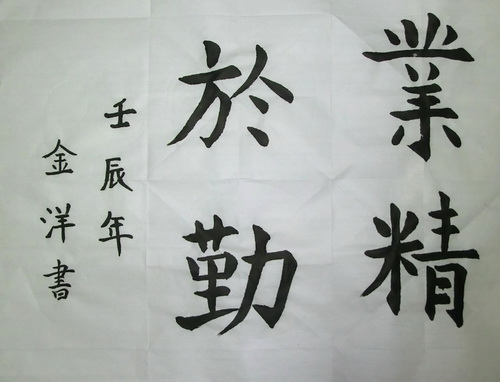 業精
於勤
壬辰年
金洋書